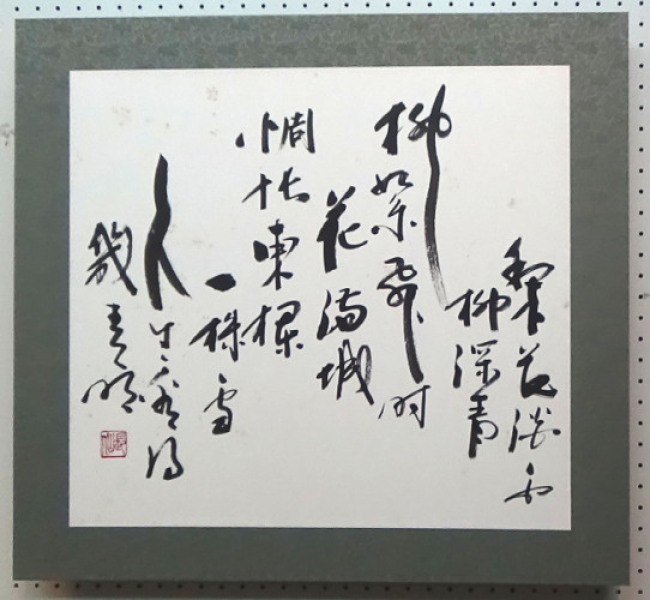 梨花淡白
柳深青
柳絮飛时
花满城
惆怅東欄
一株雪
人生看得
幾清明